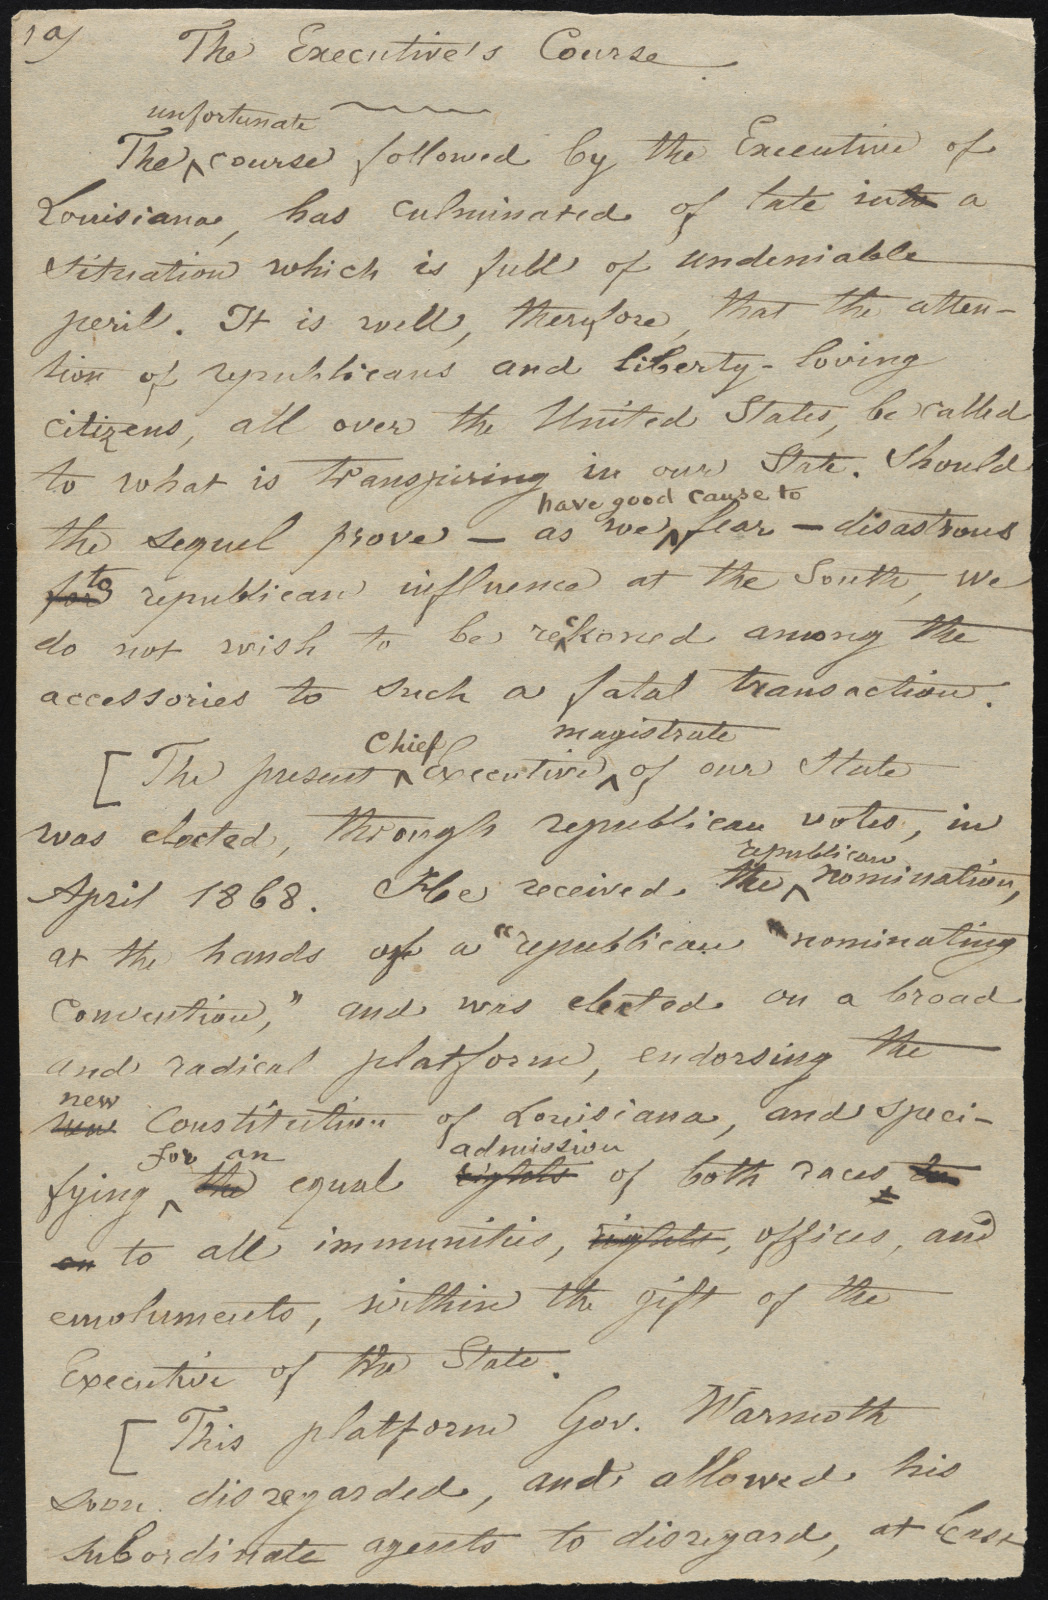 1a/
The Executive's Course.
unfortunate
The course followed by the Executive of
Louisiana, has culminated of late into a
situation which is full of undeniable
peril. It is well, therefore, that the atten-
tion of republicans and liberty-loving
citizens, all over the United States, be called
to what is transpiring in our State. Should
have good cause to
the sequel prove — as we fear — disastrous
for to republican influence at the South, we
do not wish to be reckoned among the
accessories to such a fatal transaction.
Chief magistrate
[The present Executive of our State
was elected, through republican votes, in
republican
April 1868. He received the nomination,
at the hands of a "republican "nominating
Convention," and was elected on a broad
and radical platform, endorsing the
new
new Constitution of Louisiana, and speci-
for an admission
fying the equal rights of both races
on to all immunities, rights, offices, and
emoluments, within the gift of the
Executive of the State.
[This platform Gov. Warmoth
soon disregarded, and allowed his
subordinate agents to disregard, at least